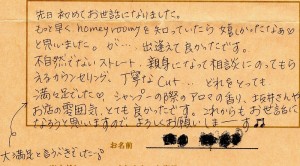 先日初めてお世話になりました。
もっと早くhoneyroomyを知っていたら嬉しかったなぁ♡
と思いました。が…、出逢えて良かったです。
不自然でないストレート、親身になって相談にのってもら
えるカウンセリング、丁寧なCut…どれをとっても
満足でした♡ シャンプーの際のアロマの香り、坂井さんや
お店の雰囲気、とても良かったです。これからもお世話に
なろうと思いますので、よろしくお願いしまーす♫
大満足と言うべきでした
お名前